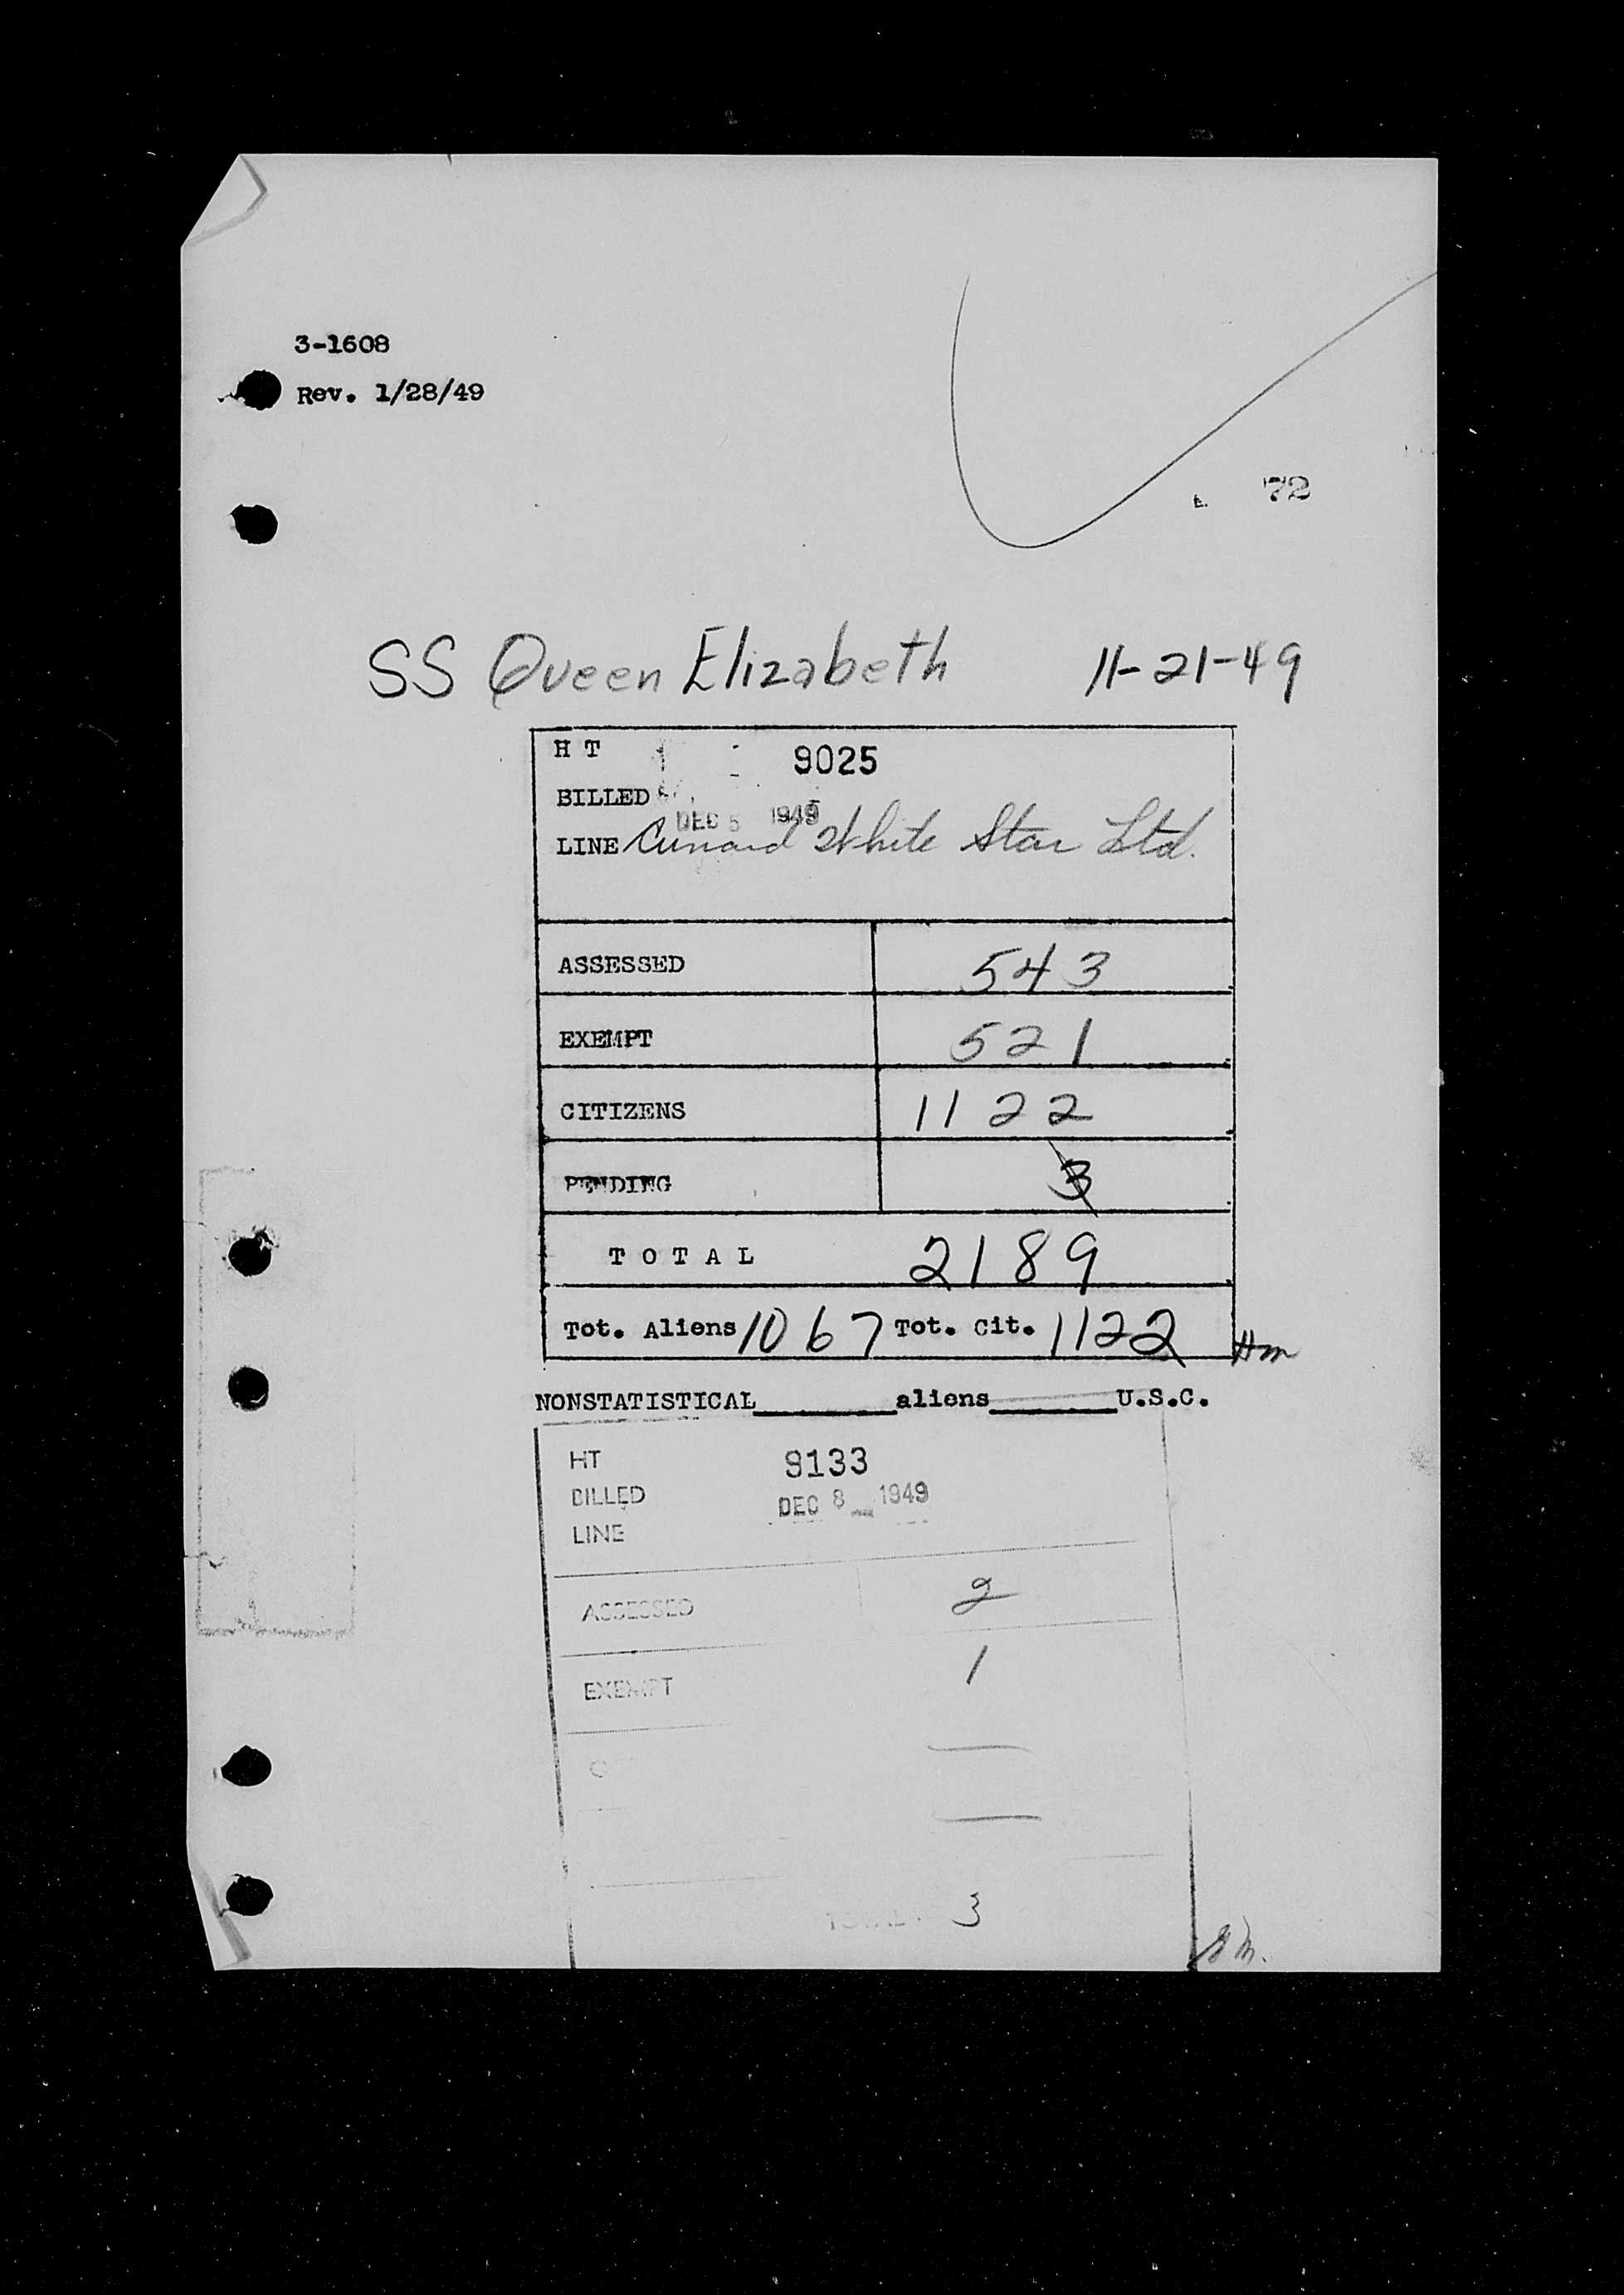 3-1608
Rev. 1/28/49
72
SS Queen Elizabeth 11-21-49
H T 9025
BILLED DEC 5 1949
LINE Cunard White Star Ltd.
ASSESSED 543
EXEMPT 521
CITIZENS 1122
PENDING 3
TOTAL 2189
Tot. Aliens 1067 Tot. Cit. 1122 Hm
NONSTATISTICAL________aliens________U.S.C.
HT 9133
BILLED DEC 8 1949
LINE
ASSESSED 2
EXEMPT 1
TOTAL 3